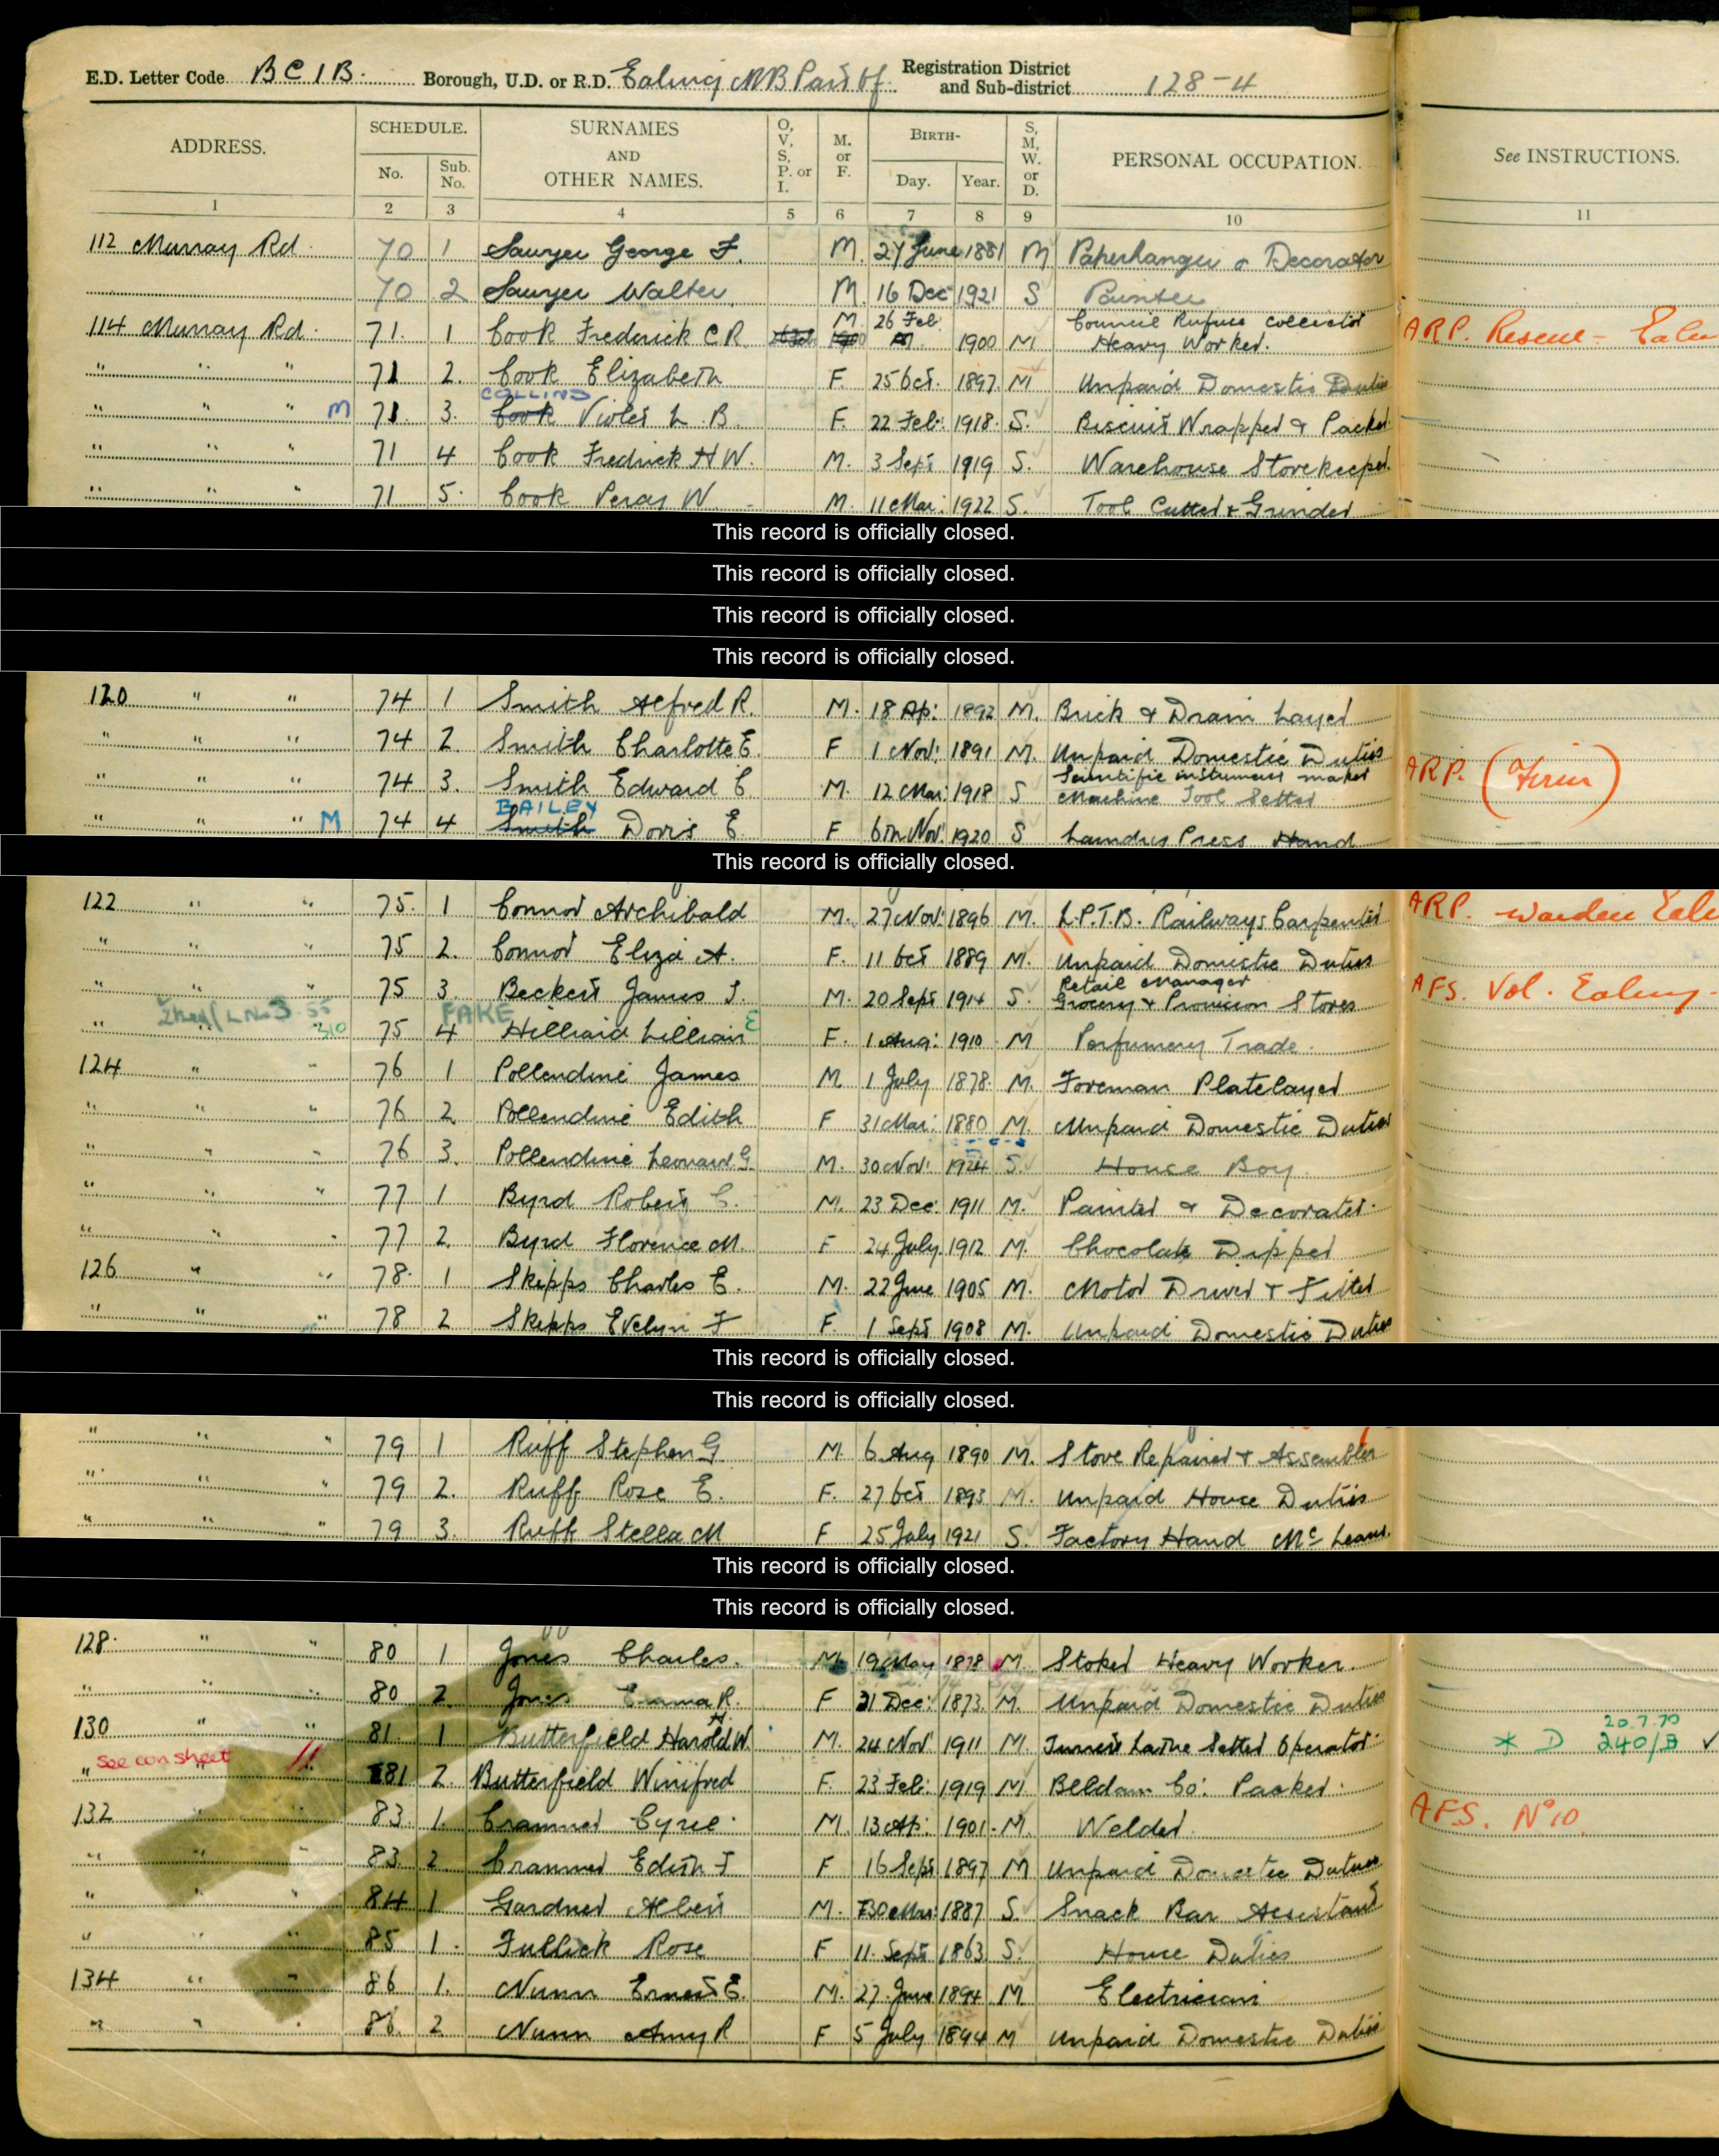 E.D. Letter Code BC1B. Borough, U.D. or R.D. Ealing MB Part of Registration District and Sub-district 128-4
ADDRESS. SCHEDULE. No. Sub. No. SURNAMES AND OTHER NAMES. O, V, S, P. or I. M. or F. BIRTH- Day. Year. S, M, W. or D. PERSONAL OCCUPATION. See INSTRUCTIONS.
1 2 3 4 5 6 7 8 9 10 11
112 Murray Rd. 70 1 Sawyer George F. M. 27 June 1881 M Paperhanger & Decorator
70 2 Sawyer Walter. M. 16 Dec 1921 S Painter
114 Murray Rd. 71. 1 Cook Frederick C R. M 26 Feb. 1900 M Council Refuse Collector Heavy Worker. ARP. Rescue -
" " " 71 2. Cook Elizabeth F. 25 Oct. 1897 M Unpaid Domestic Duties
COLLINS
" " " M 71. 3. Cook Violet L. B. F. 22 Feb: 1918. S. Biscuit Wrapper & Packer
" " " 71 4 Cook Fredrick H W. M. 3 Sept 1919 S. Warehouse Storekeeper.
" " " 71 5. Cook Percy W. M. 11 Mar: 1922 S. Tool Cutter & Grinder
This record is officially closed.
This record is officially closed.
This record is officially closed.
This record is officially closed.
120 " " 74 1 Smith Alfred R. M. 18 Ap: 1892 M. Brick & Drain Layer
" " " 74 2. Smith Charlotte E. F 1 Nov: 1891 M. Unpaid Domestic Duties
" " " 74 3. Smith Edward C. M. 12 Mar: 1918 S Scientific instrument maker Machine Tool Setter ARP. (Firm)
BAILEY
" " " M 74 4 Smith Doris E. F 6th Nov: 1920 S Laundry Press Hand
This record is officially closed.
122 " " 75. 1 Connor Archibald M. 27 Nov: 1896 M. L.P.T.B. Railways Carpenter ARP. Warden
" " " 75 2. Connor Eliza A. F. 11 Oct 1889 M. Unpaid Domestic Duties
" " " 75 3. Beckett James J. M. 20 Sept 1914 S. Retail Manager Grocery & Provision Stores AFS. Vol. Ealing.
FAKE
" 75 4 Hilliard Lillian E F. 1 Aug: 1910 M Perfumery Trade.
124 " " 76 1 Pollendine James M 1 July 1878. M. Foreman Platelayer
" " " 76 2 Pollendine Edith F 31 Mar: 1880 M. Unpaid Domestic Duties
" " " 76 3. Pollendine Leonard G. M. 30 Nov: 1924 S. House Boy
" " " 77 1 Byrd Robert C. M. 23 Dec: 1911 M. Painter & Decorator.
" " " 77 2. Byrd Florence M. F 24 July. 1912 M. Chocolate Dipper
126 " " 78. 1 Skipps Charles E. M. 22 June 1905 M. Motor Driver & Fitter
" " " 78 2 Skipps Evelyn F F. 1 Sept 1908 M. Unpaid Domestic Duties
This record is officially closed.
This record is officially closed.
" " " 79 1 Ruff Stephen G M. 6 Aug 1890 M. Stove Repairer & Assembler
" " " 79 2. Ruff Rose E. F. 27 Oct 1893 M. Unpaid House Duties
" " " 79 3. Ruff Stella M F 25 July 1921 S. Factory Hand Mc Leans.
This record is officially closed.
This record is officially closed.
128. " " 80 1 Jones Charles. M. 19 May 1878 M. Stoker Heavy Worker.
" " " 80 2. Jones Emma R. F 31 Dec: 1873. M. Unpaid Domestic Duties
20.7.70
130 " " 81. 1 Butterfield Harold W. M. 24 Nov 1911 M. Turret Lathe Setter Operator. * D 240/B ✓
see con sheet 11
" 81 2. Butterfield Winifred F. 23 Feb: 1919 M. Beldam Co: Packer.
132 " " 83. 1. Crammer Cyril. M. 13 Ap: 1901. M. Welder. AFS. No 10.
" " " 83. 2 Crammer Edith F F 16 Sept 1897 M Unpaid Domestic Duties
" " " 84 1 Gardner Albert M. 30 Mar: 1887 S. Snack Bar Assistant
" " " 85 1. Fullick Rose F 11. Sept 1863 S. House Duties
134 " " 86 1. Nunn Ernest E. M. 27. June 1894 M Electrician
" " " 86. 2 Nunn Amy R F 5 July 1894 M Unpaid Domestic Duties